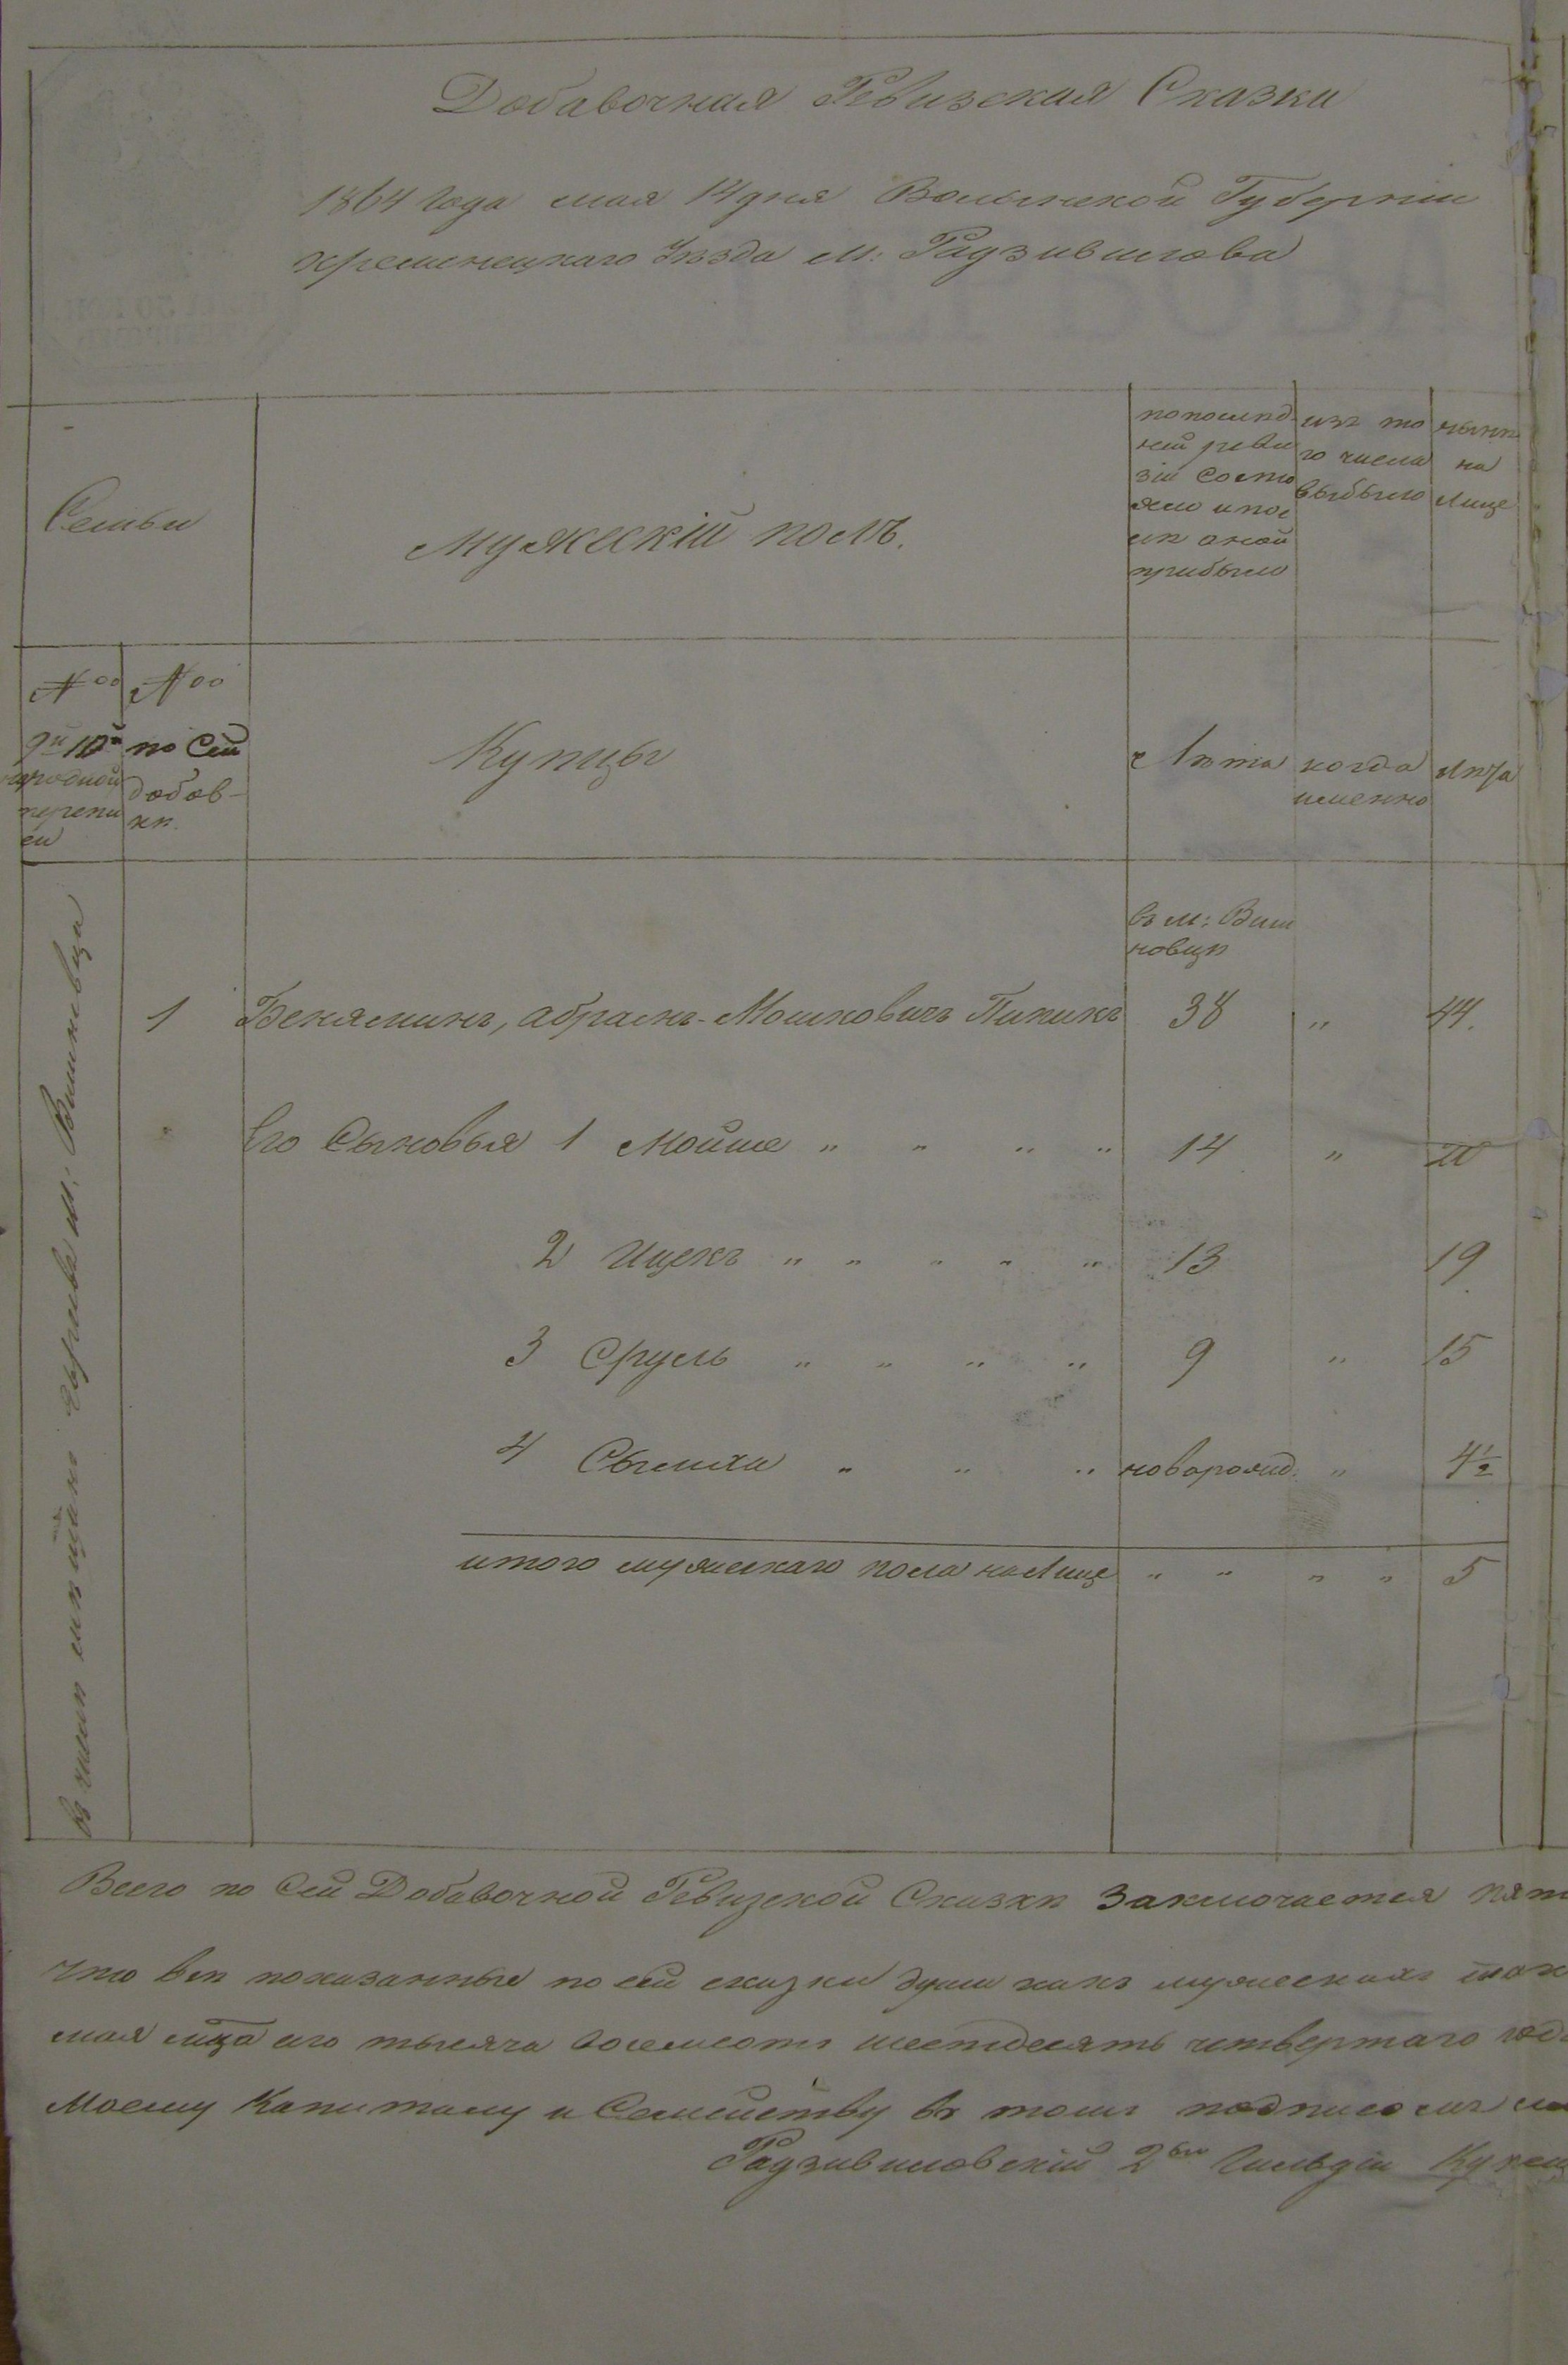 Добавочная Ревизская Сказка
1864 Года мая 14 дня Волынской Губерніи
Кременецкаго Уѣзда М: Радзивилова
Семьи
Мужескій полъ.
по послѣд-
ней реви
зіи состо
яло и пос
лѣ оной
прибыло
изъ то
го числа
выбыло
нынѣ
на
Лице
№
9й 10й
народной
перепи
си
№
по Сей
добав-
кѣ
Купцы
Лѣта
когда
именно
Лѣта
въ числѣ мѣщанъ Евреевъ м: Вишневца
въ м: Виш
новцѣ
1 Беняминъ, Абрамъ-Мошковичъ Пикикъ 38 " 44.
Его Сыновья 1 Мойше " " " " 14 " 20
2 Ицекъ " " " " " 13 19
3 Сруль " " " " 9 " 15
4 Сымха " " " новорожд: " 4 1/2
итого мужескаго пола на Лице " " " " 5
Всего по Сей Добавочной Ревизской Сказкѣ Заключается пят
что всѣ показанные по сей сказки души какъ мужескихъ так
мая мца его тысяча восемсотъ шестдесять четвертаго год
Моему Капиталу и Семейству въ томъ подписомъ
Радзивиловскій 2ой Гильдіи Купец